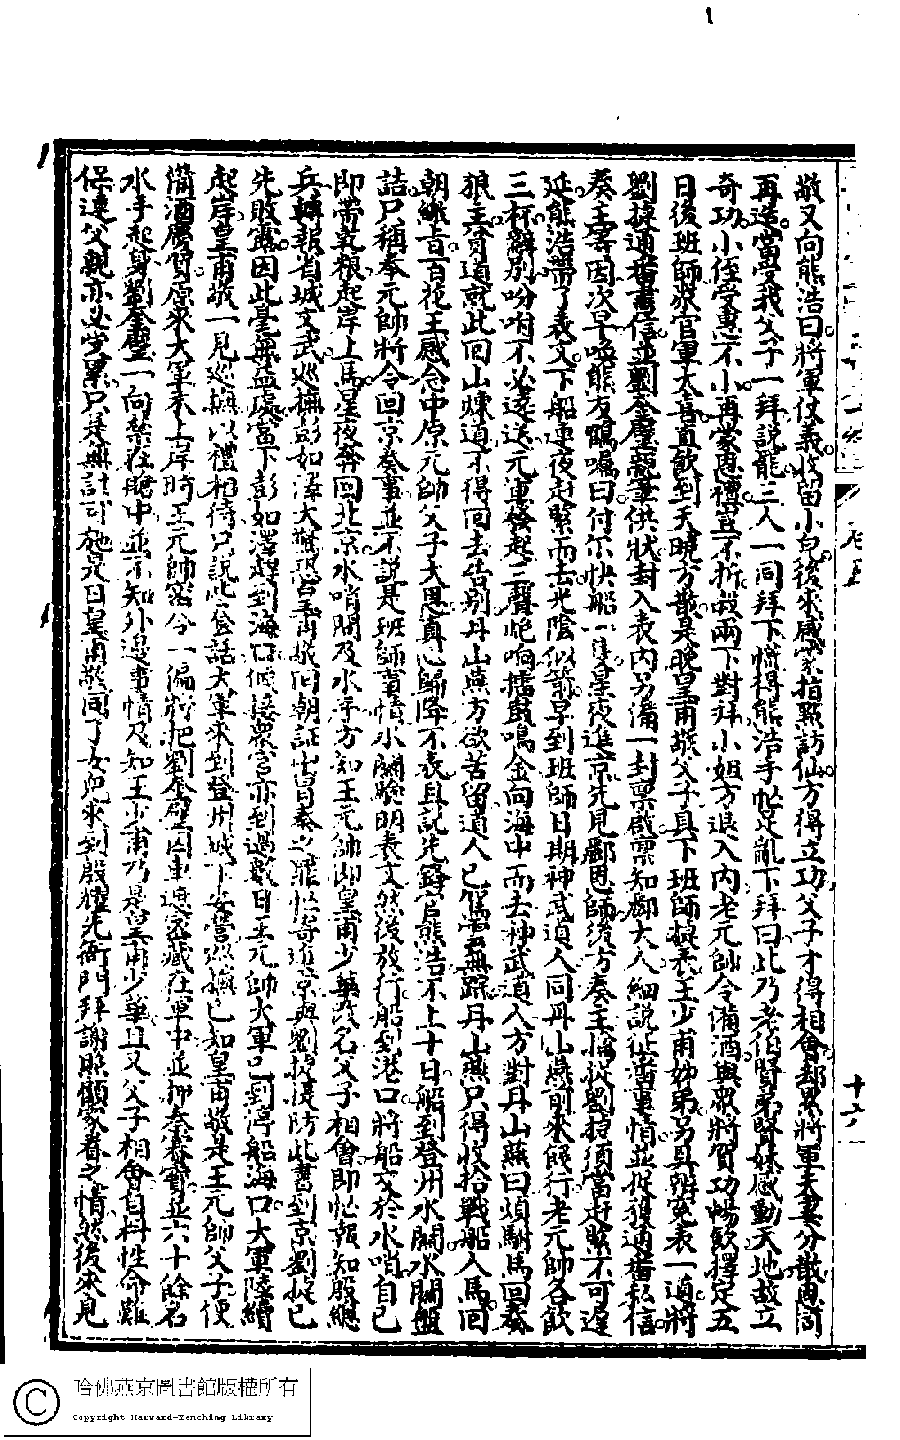 敬又向熊浩曰將軍仗義收留小兒後來感蒙指點訪仙方得立功父子才得相會却累將軍夫妻分散恩同
再造當受我父子一拜說罷三人一同拜下慌得熊浩手忙足亂下拜曰此乃老伯賢弟賢妹感動天地故立
奇功小侄受惠不小再蒙恩禮豈不折殺兩下對拜小姐方退入內老元帥令備酒與眾將賀功暢飲擇定五
日後班師眾官軍大喜直飲到天曉方散是晚皇甫敬父子具下班師捷表王少甫姊弟另具辨冤表一道將
劉捷通番書信並劉奎璧親筆供狀封入表內另備一封稟啟稟知酈大人細說從前事情並捉獲通番私信
奏主害因次早喚熊友鶴囑曰付尔快船一隻星夜進京先見酈恩師後方奏主擒捉劉捷須當赶緊不可遲
延熊浩帶了表文下船連夜赶緊而去光陰似箭早到班師日期神武道人同丹山燕前來餞行老元帥各飲
三杯辭別吩咐不必遠送元連發起三聲炮响擂鼓鳴金向海中而去神武道人方對丹山燕曰煩駙馬回奏
狼主貧道就此回山煉道不得回去告別丹山燕方欲苦留道人已騰雲無踪丹山燕只得收拾戰船入馬回
朝繳旨百花王感念中原元帥父子大恩真心歸降不表且說先鋒官熊浩不上十日船到登州水關水關盤
詰只稱奉元帥將令回京奏事並不說是班師事情水關驗明表文然後放行船到港口將船交於水哨自己
即帶乾粮起岸上馬星夜奔回北京水哨問及水手方知王元帥即皇甫少華改名父子相會即忙報知殷總
兵轉報省城文武巡撫彭如澤大驚恐皇甫敬回朝証出冒奏之罪忙寄進京與劉捷隄防此書到京劉捷已
先敗露因此毫無益處當下彭如澤趕到海口伺接眾官亦到過數日王元帥大軍已到停船海口大軍陸續
起岸皇甫敬一見巡撫以禮相待只說些套話大軍來到登州城下安營巡撫已知皇甫敬是王元帥父子便
備酒慶賀原來大軍未上岸時王元帥密令一偏將把劉奎璧囚車遮密藏在軍中並押秦賽寶並六十餘名
水手起身劉奎璧一向禁在艙中並不知外邊事情及知王少甫乃是皇甫少華且又父子相會自料性命難
保連父親亦必受累只是無計可施是日皇甫敬同了女兒來到殷耀先衙門拜謝照顧家眷之情然後來見
十六
哈佛燕京圖書館版權所有
Copyright Harvard-Yenching Library